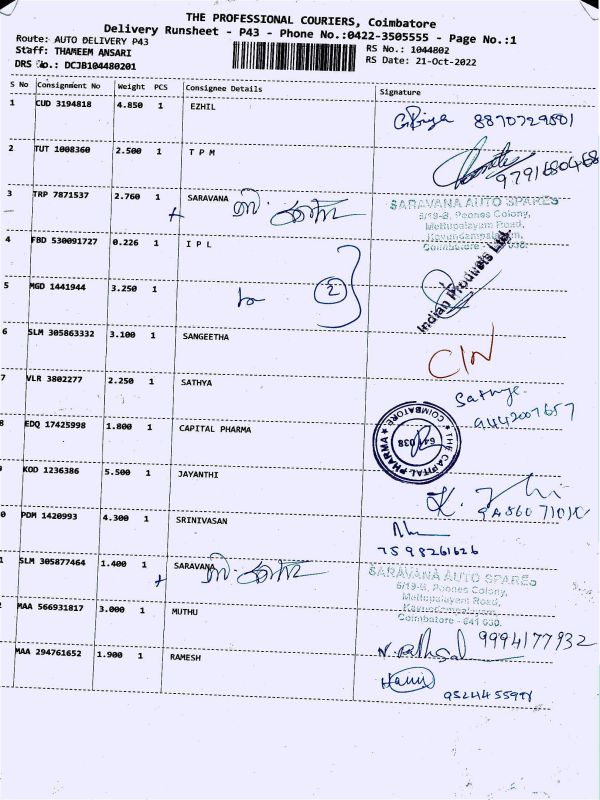 THE PROFESSIONAL COURIERS, Coimbatore
Delivery Runsheet - P43 - Phone No.:0422-3505555 - Page No.:1
Route: AUTO DELIVERY P43
RS No.: 1044802
Staff: THAMEEM ANSARI
RS Date: 21-Oct-2022
DRS No.: DCJB104480201
S No Consignment No Weight PCS Consignee Details Signature
1 CUD 3194818 4.850 1 EZHIL
8870729801
2 TUT 1008360 2.500 1 T P M
3 TRP 7871537 2.760 1 SARAVANA
SARAVANA AUTO SPARES
6/19-B, Peones Colony,
Mettupalayam Road,
Kavundampalayam,
Coimbatore - 641 030.
4 FBD 530091727 0.226 1 I P L
2
Indian Products Ltd.
5 MGD 1441944 3.250 1
6 SLM 305863332 3.100 1 SANGEETHA
7 VLR 3802277 2.250 1 SATHYA
Sathya
9442007657
8 EDQ 17425998 1.800 1 CAPITAL PHARMA
THE CAPITAL PHARMA
COIMBATORE
641 038
KOD 1236386 5.500 1 JAYANTHI
0 PDM 1420993 4.300 1 SRINIVASAN
7598261626
1 SLM 305877464 1.400 1 SARAVANA
SARAVANA AUTO SPARES
6/19-B, Peones Colony,
Mettupalayam Road,
Kavundampalayam,
Coimbatore - 641 030.
2 MAA 566931817 3.000 1 MUTHU
9994177932
MAA 294761652 1.900 1 RAMESH